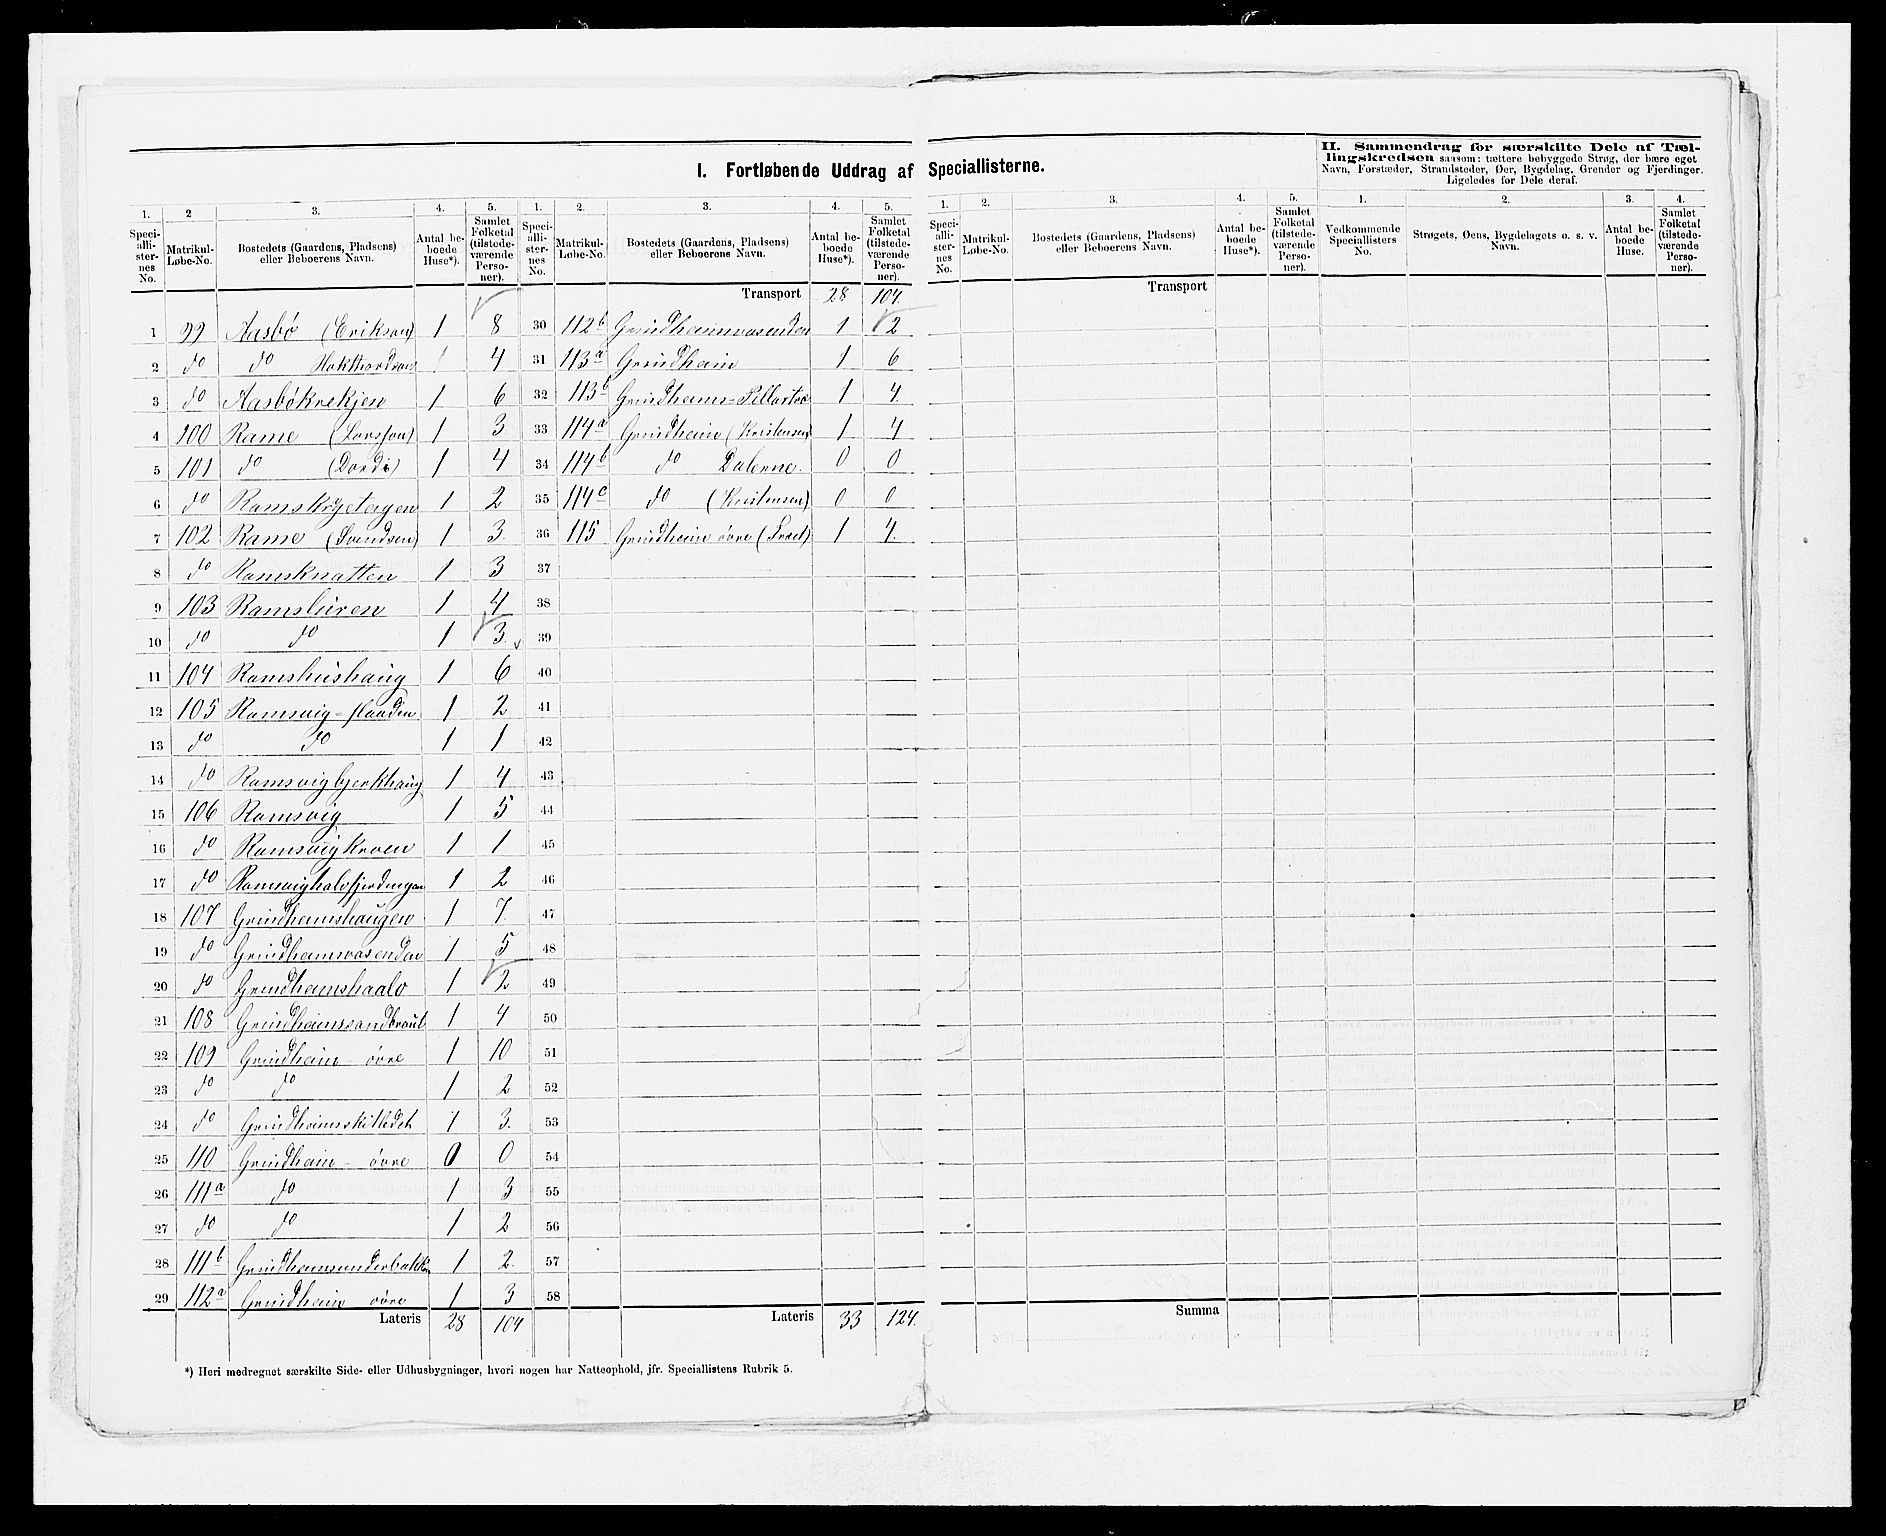 I. Fortløbende Uddrag af Speciallisterne.
II. Sammendrag for særskilte Dele af Tæl-
lingskredsen saasom: tættere bebyggede Strøg, der bære eget
Navn, Forstæder, Strandsteder, Øer, Bygdelag, Grender og Fjerdinger.
Ligeledes for Dele deraf.
1. 2 3. 4. 5. 1. 2. 3. 4. 5. 1. 2. 3. 4. 5. 1. 2. 3. 4.
Speciallisternes No. Matrikul-Løbe-No. Bostedets (Gaardens, Pladsens) eller Beboerens Navn. Antal beboede Huse*). Samlet Folketal (tilstedeværende Personer).
Speciallisternes No. Matrikul-Løbe-No. Bostedets (Gaardens, Pladsens) eller Beboerens Navn. Antal beboede Huse*). Samlet Folketal (tilstedeværende Personer).
Speciallisternes No. Matrikul-Løbe-No. Bostedets (Gaardens, Pladsens) eller Beboerens Navn. Antal beboede Huse*). Samlet Folketal (tilstedeværende Personer).
Vedkommende Speciallisters No. Strøgets, Øens, Bygdelagets o. s. v. Navn. Antal beboede Huse. Samlet Folketal (tilstedeværende Personer).
1 99 Aasbø (Erikson) 1 8
2 do do 1 4
3 do Aasbøkrekjen 1 6
4 100 Rame 1 3
5 101 do (Dordi) 1 4
6 do 1 2
7 102 Rame (Svendsen) 1 3.
8 do Ramsknatten 1 3
9 103 Ramsluren 1 4
10 do do 1 3.
11 104 Ramshushaug 1 6
12 105 Ramsvig-flaaden 1 2
13 do do 1 1
14 do Ramsvigbjerkhaug 1 4
15 106 Ramsvig 1 5
16 do Ramsvigkroen 1 1
17 do Ramsvighalvfjerdingen 1 2
18 107 Grindhemshaugen 1 7.
19 do Grindhemsvasenden 1 5
20 do Grindhemshaalo 1 2
21 108 Grindheimssandbraut 1 4
22 109 Grindheim - øvre 1 10
23 do do 1 2
24 do Grindheimskilledet 1 3.
25 110 Grindheim - øvre 0 0
26 111a do 1 3
27 do do 1 2
28 111b Grindhemsunderbakken 1 2.
29 112a Grindheim øvre 1 3
Lateris 28 104
Transport 28 104.
30 112b Grindheimvasenden 1 2
31 113a Grindheim 1 6
32 113b 1 4.
33 114a Grindheim (Kristensen) 1 4
34 114b do Dalenne. 0 0
35 114c do (Kristensen) 0 0
36 115 Grindheim øvre 1 4.
37
38
39
40
41
42
43
44
45
46
47
48
49
50
51
52
53
54
55
56
57
58
Lateris 33 124.
Transport
Summa
*) Heri medregnet særskilte Side- eller Udhusbygninger, hvori nogen har Natteophold, jfr. Speciallistens Rubrik 5.